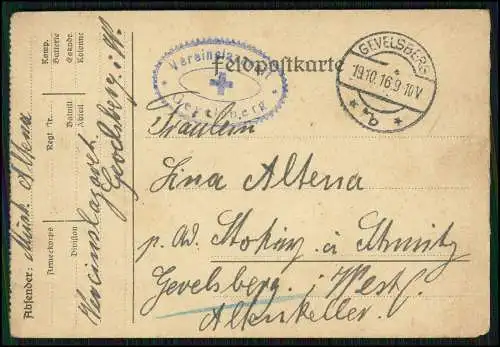 Feldpostkarte
Vereinslazarett
Gevelsberg
GEVELSBERG
19.10.16.9-10V
* b *
Fräulein
Lina Altena
p. Ad. Stokey & Schmitz
Gevelsberg i/Westf.
Altenkeller.
Absender: Musk. Altena
Vereinslazaret.
Gevelsberg i. W.
Armeekorps Regt. Nr. Komp.
Batterie
Division Bataill. Eskadr.
Abteil. Kolonne